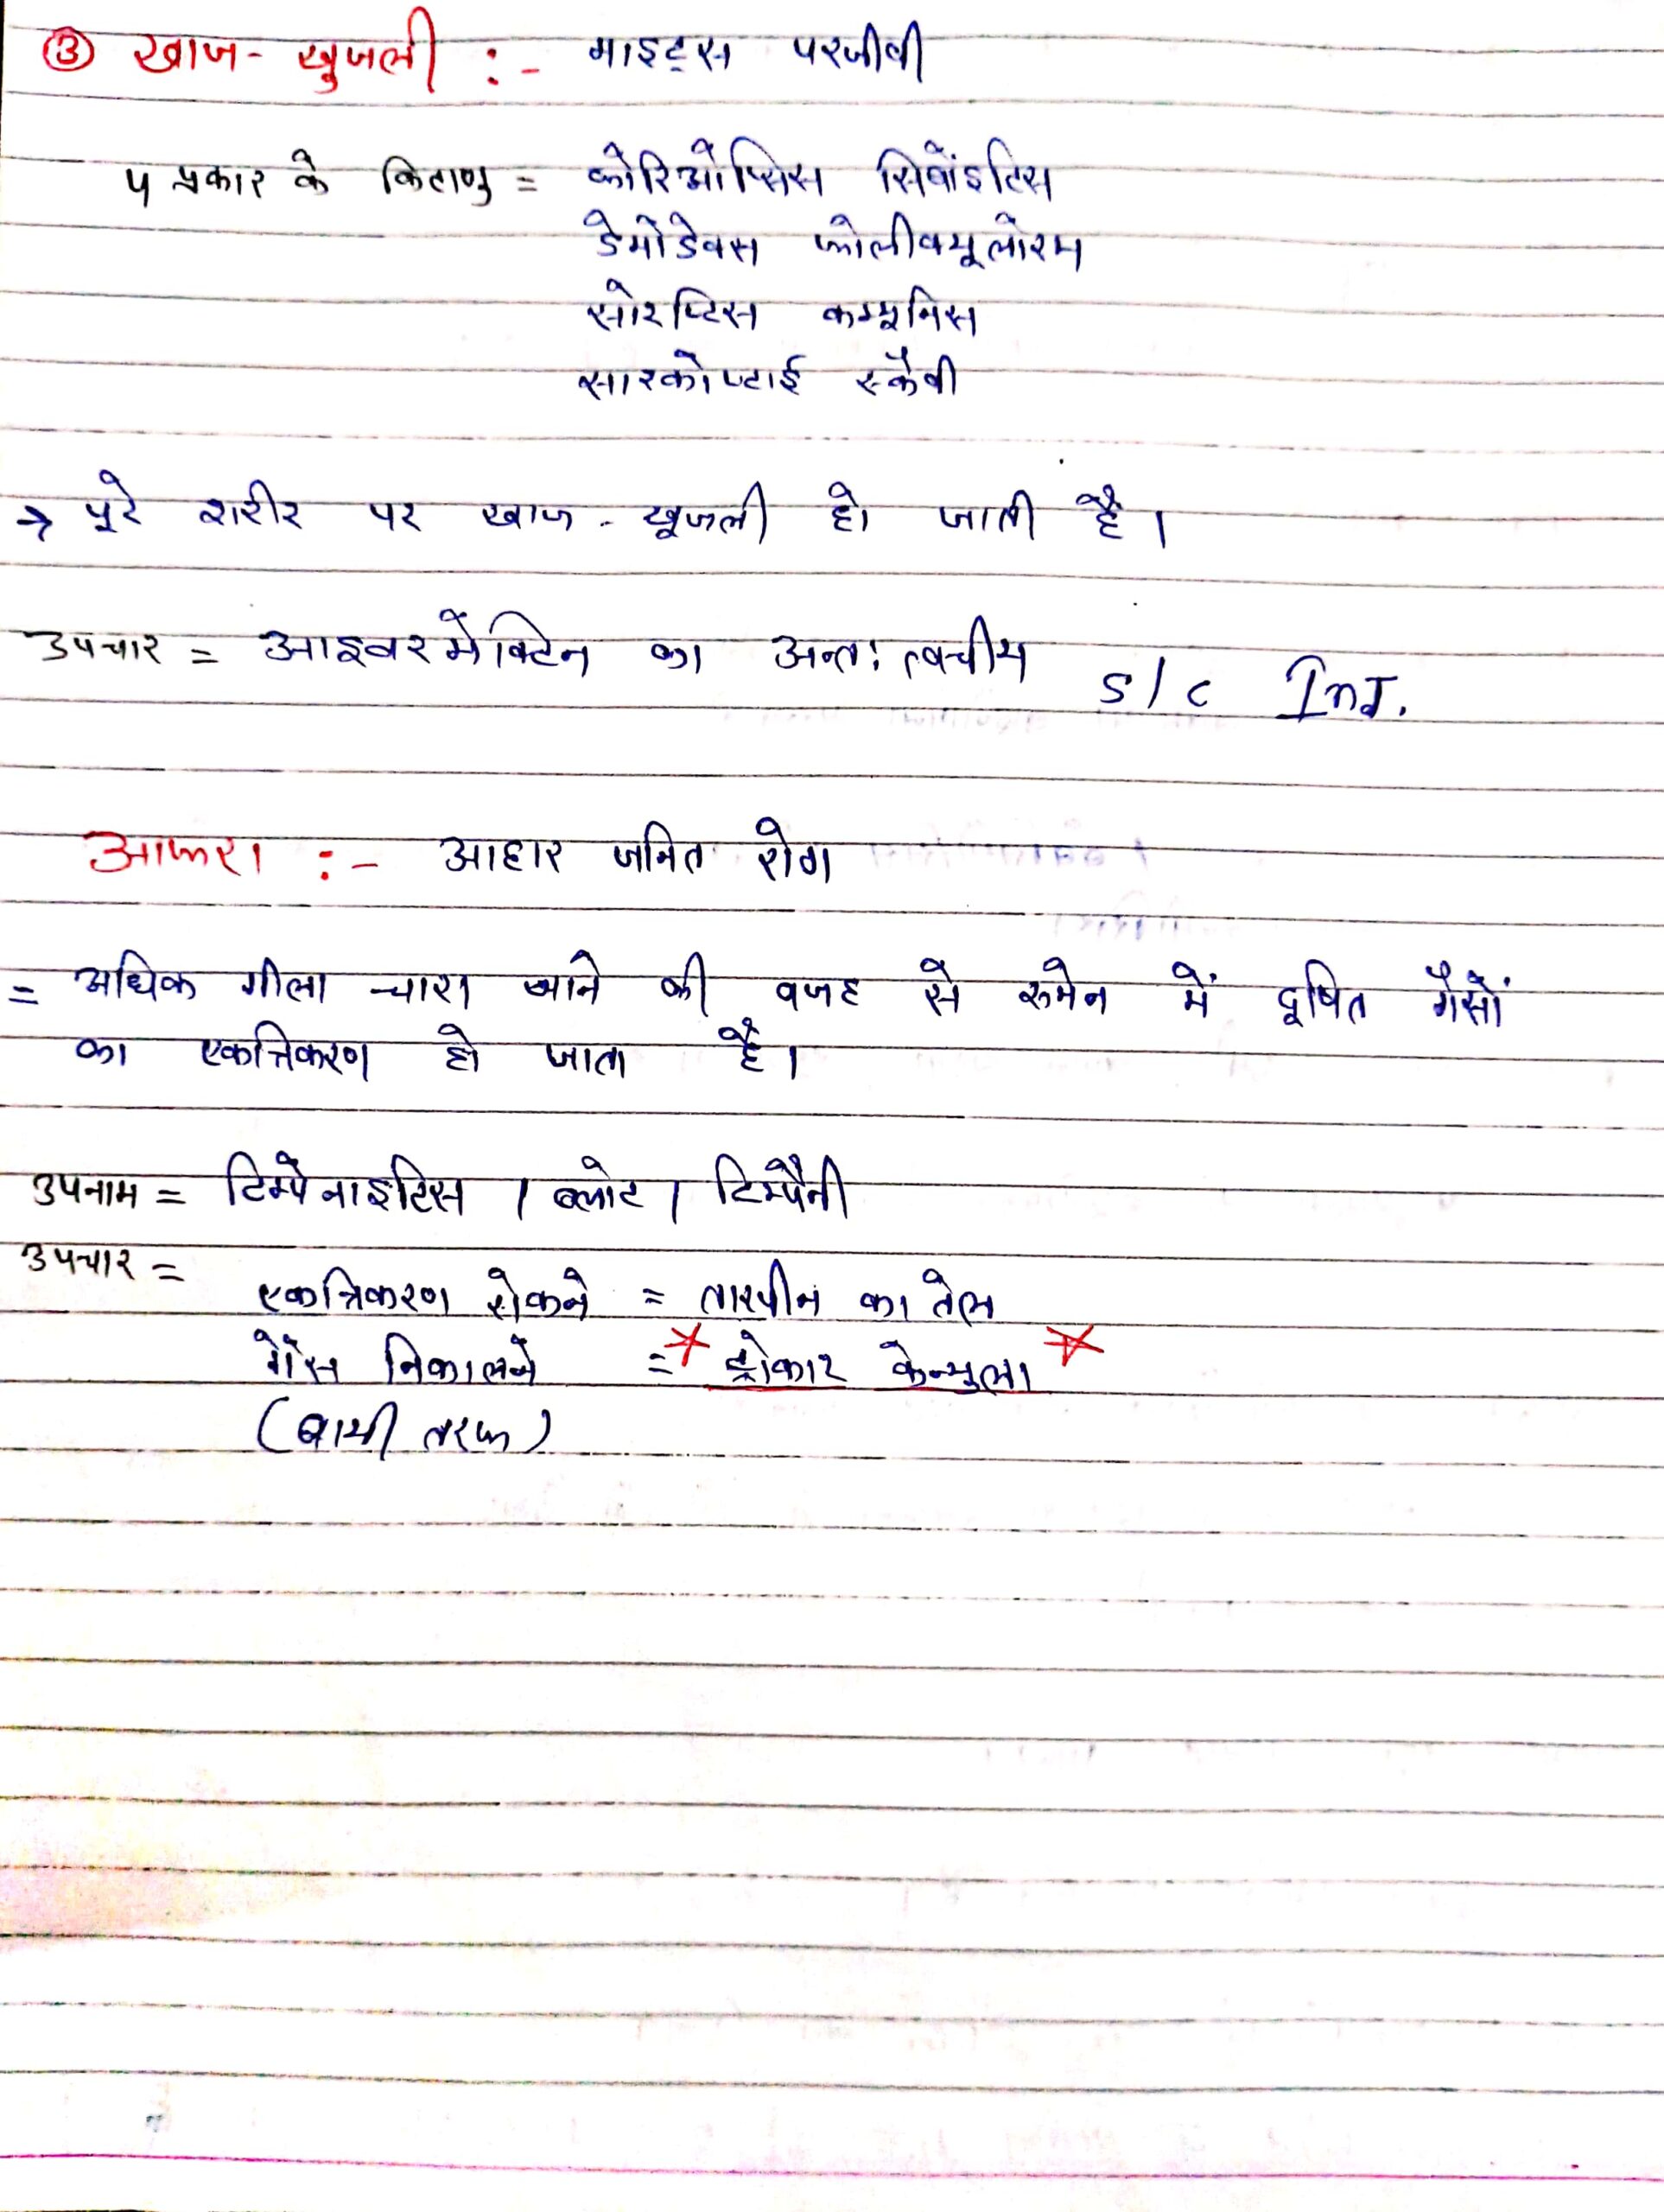 ③ खाज - खुजली :- माइट्स परजीवी
4 प्रकार के किटाणु = कोरिओप्सिस सिवोंइटिस
डेमोडेक्स फोलीक्यूलोरम
सोरप्टिस कम्यूनिस
सारकोप्टाई स्कैवी
→ पूरे शरीर पर खाज - खूजली हो जाती है।
उपचार = आइवरमेक्टिन का अन्तः त्वचीय S/C InJ.
आफरा :- आहार जनित रोग
= अधिक गीला चारा खाने की वजह से रुमेन में दूषित गैसों
का एकत्रिकरण हो जाता है।
उपनाम = टिम्पेनाइटिस / ब्लोट / टिम्पैनी
उपचार =
एकत्रिकरण रोकने = तारपीन का तेल
गैस निकालने = * ट्रोकार केन्युला *
(बायी तरफ)